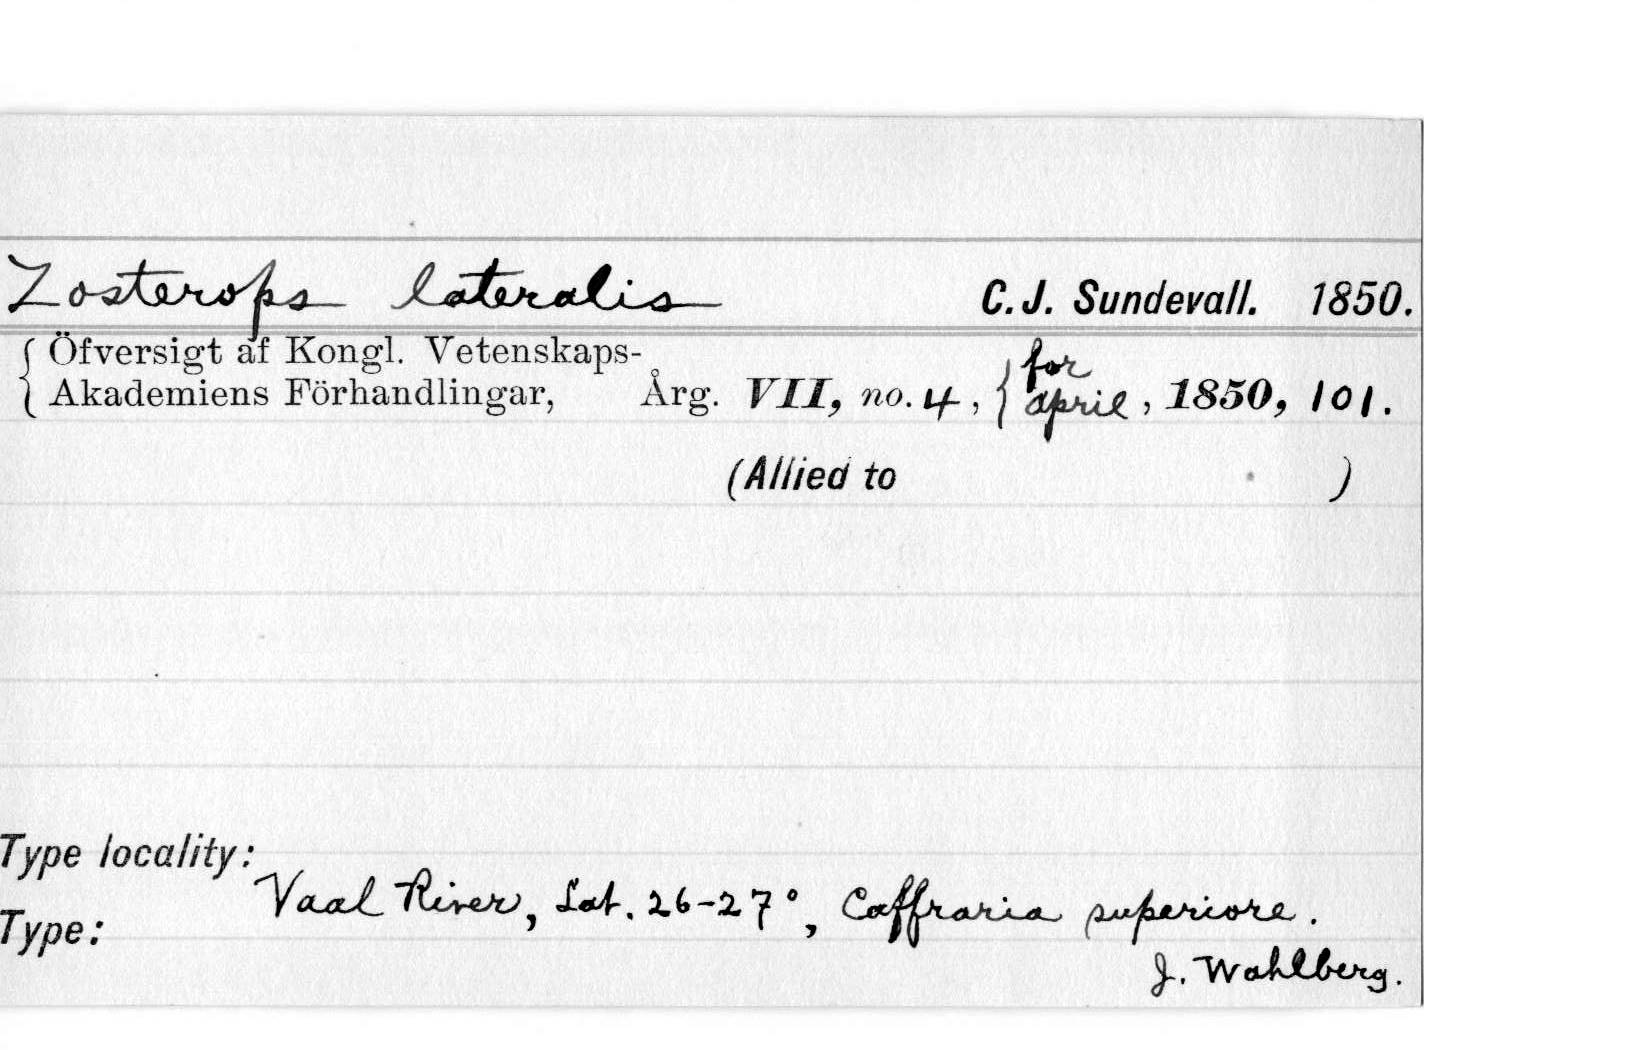 Zosterops lateralis C. J. Sundevall. 1850.
{ Öfversigt af Kongl. Vetenskaps-
Akademiens Förhandlingar, Årg. VII, no. 4, { for april, 1850, 101.
(Allied to )
Type locality:
Vaal River, Lat. 26-27°, Caffraria superiore.
Type:
J. Wahlberg.